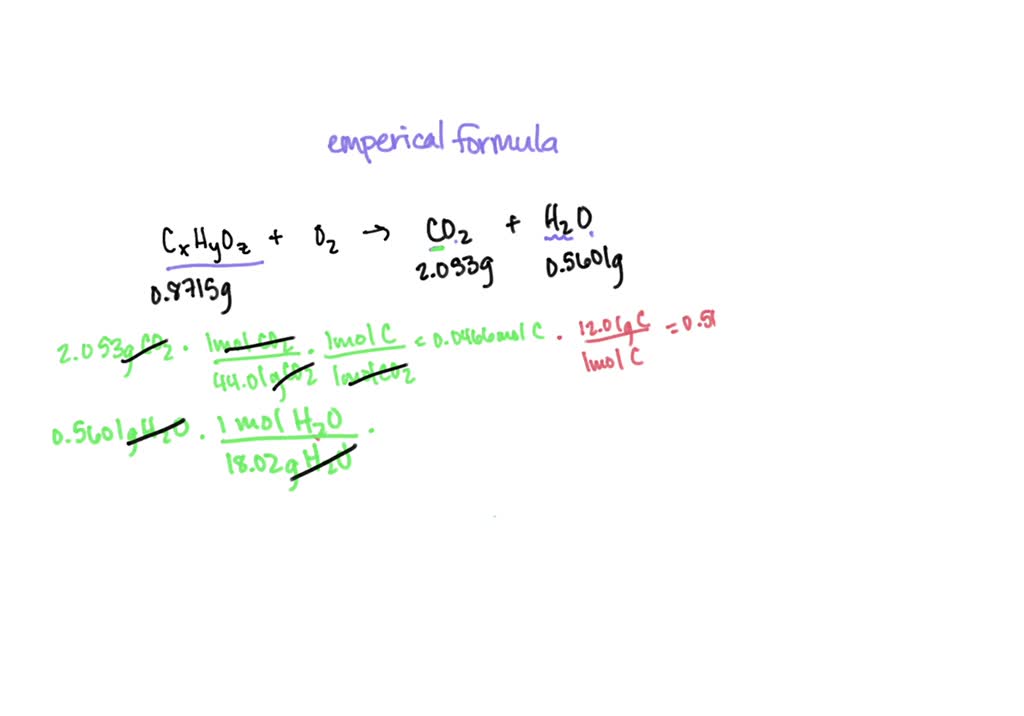 emperical formula
CxHyOz + O2 → CO2 + H2O
0.8715g 2.053g 0.5601g
2.053g CO2 · 1mol CO2 / 44.01g CO2 · 1mol C / 1mol CO2 = 0.0466mol C · 12.01g C / 1mol C = 0.51
0.5601g H2O · 1 mol H2O / 18.02g H2O ·